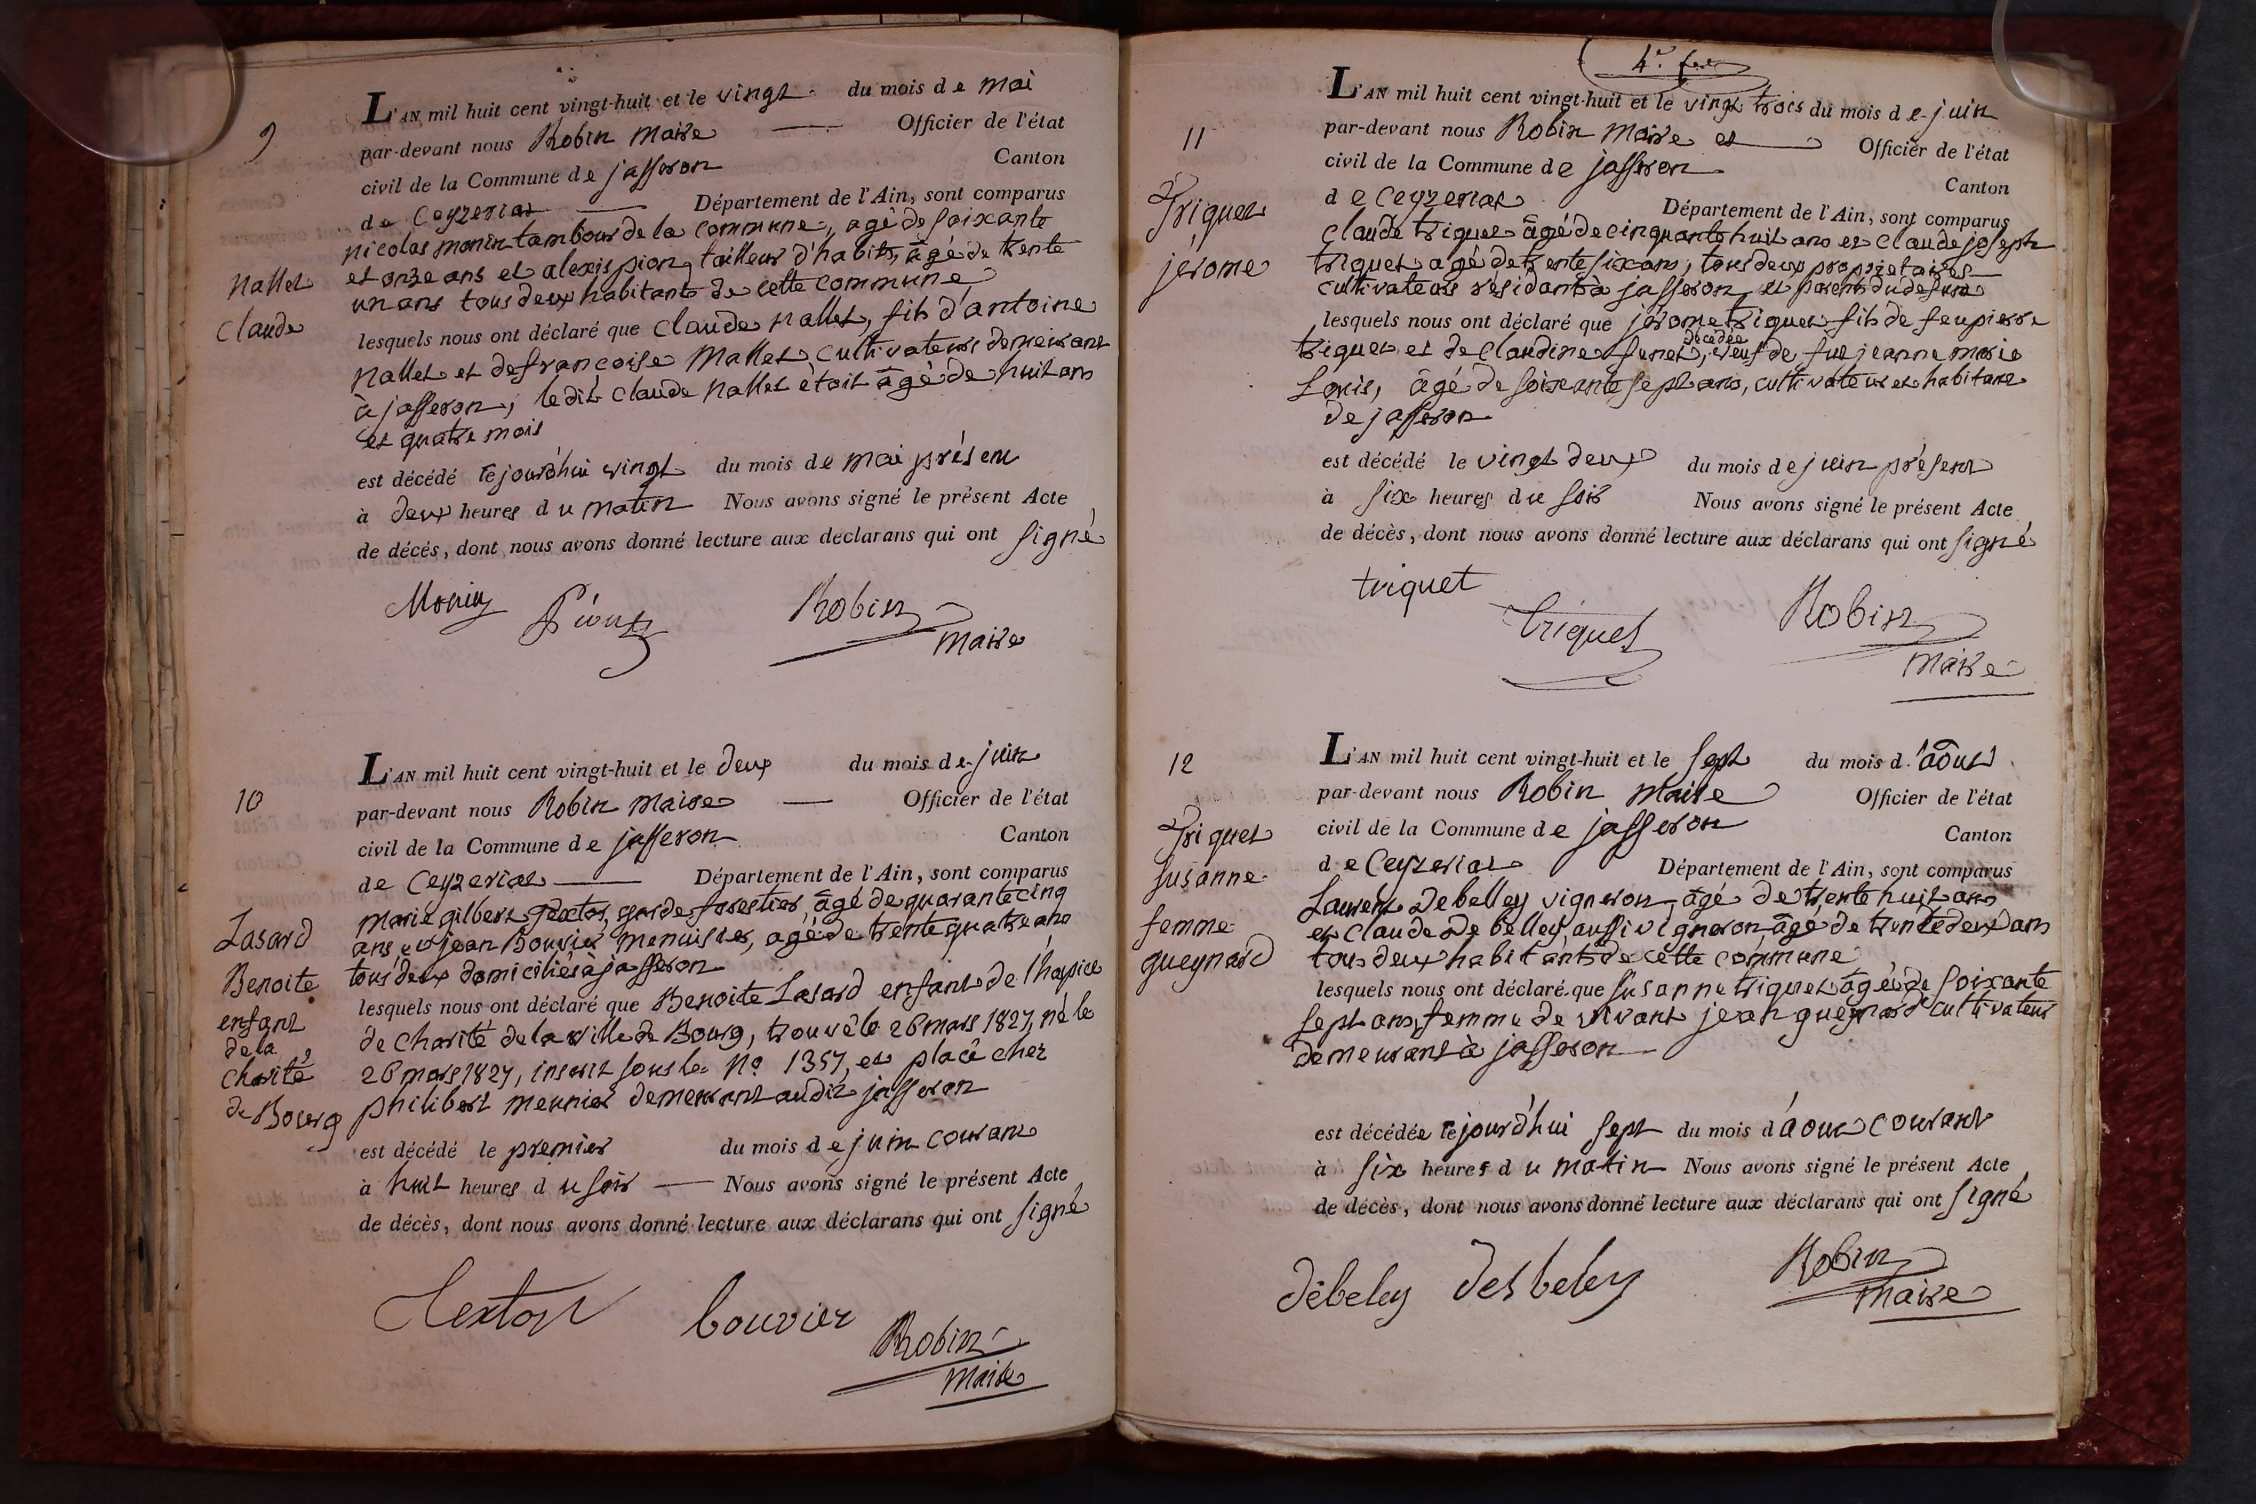 9
Nallet
Claude
L'AN mil huit cent vingt-huit et le vingt du mois de mai
par-devant nous Robin Maire Officier de l'état
civil de la Commune de jasseron Canton
de Ceyzeriat Département de l'Ain, sont comparus
nicolas monin tambour de la commune, agé de soixante
et onze ans et alexis pion, tailleur d'habits, âgé de trente
un ans tous deux habitants de cette commune
lesquels nous ont déclaré que Claude Nallet, fils d'antoine
Nallet et de francoise Mallet cultivateurs demeurant
à jasseron, ledit Claude Nallet était âgé de huit ans
et quatre mois
est décédé cejourd'hui vingt du mois de mai présent
à deux heures du matin Nous avons signé le présent Acte
de décés, dont nous avons donné lecture aux declarans qui ont signé
Monin Pion Robin
Maire
10
Lasard
Benoite
enfant
de la
charité
de Bourg
L'AN mil huit cent vingt-huit et le deux du mois de juin
par-devant nous Robin Maire Officier de l'état
civil de la Commune de jasseron Canton
de Ceyzeriat Département de l'Ain, sont comparus
marie gilbert garde forestier, âgé de quarante cinq
ans, et jean Bouvier menuisier, agé de trente quatre ans
tous deux domiciliés à jasseron
lesquels nous ont déclaré que Benoite Lasard enfant de l'hospice
de charité de la ville de Bourg, trouvé le 26 mars 1827, né le
26 mars 1827, inscrit sous le No. 1357, et placé chez
philibert meunier demeurant audit jasseron
est décédé le premier du mois de juin courant
à huit heures du soir Nous avons signé le présent Acte
de décès, dont nous avons donné lecture aux déclarans qui ont signé
bouvier Robin
Maire
4e. fet
11
Triquet
jérome
L'AN mil huit cent vingt-huit et le vingt trois du mois de juin
par-devant nous Robin Maire et Officier de l'état
civil de la Commune de jasseron Canton
de Ceyzeriat Département de l'Ain, sont comparus
claude triquet âgé de cinquante huit ans et claude joseph
triquet agé de trente six ans, tous deux propriétaires
cultivateurs résidants à jasseron et parents du defunt
lesquels nous ont déclaré que jérome triquet fils de feu pierre
décédée
triquet et de claudine funet, veuf de fue jeanne marie
Louis, âgé de soixante sept ans, cultivateur et habitant
de jasseron
est décédé le vingt deux du mois de juin présent
à six heures du soir Nous avons signé le présent Acte
de décès, dont nous avons donné lecture aux déclarans qui ont signé
triquet Triquet Robin
Maire
12
Triquet
susanne
femme
gueynard
L'AN mil huit cent vingt-huit et le sept du mois d'août
par-devant nous Robin Maire Officier de l'état
civil de la Commune de jasseron Canton
de Ceyzeriat Département de l'Ain, sont comparus
Laurent Debelley vigneron âgé de trente huit ans
et claude De belley aussi vigneron âgé de trente deux ans
tous deux habitants de cette commune
lesquels nous ont déclaré que susanne triquet âgée de soixante
sept ans, femme de vivant jean gueynard cultivateur
demeurant à jasseron
est décédée cejourd'hui sept du mois d'aout courant
à six heures du matin Nous avons signé le présent Acte
de décès, dont nous avons donné lecture aux déclarans qui ont signé
débeley desbeley Robin
Maire